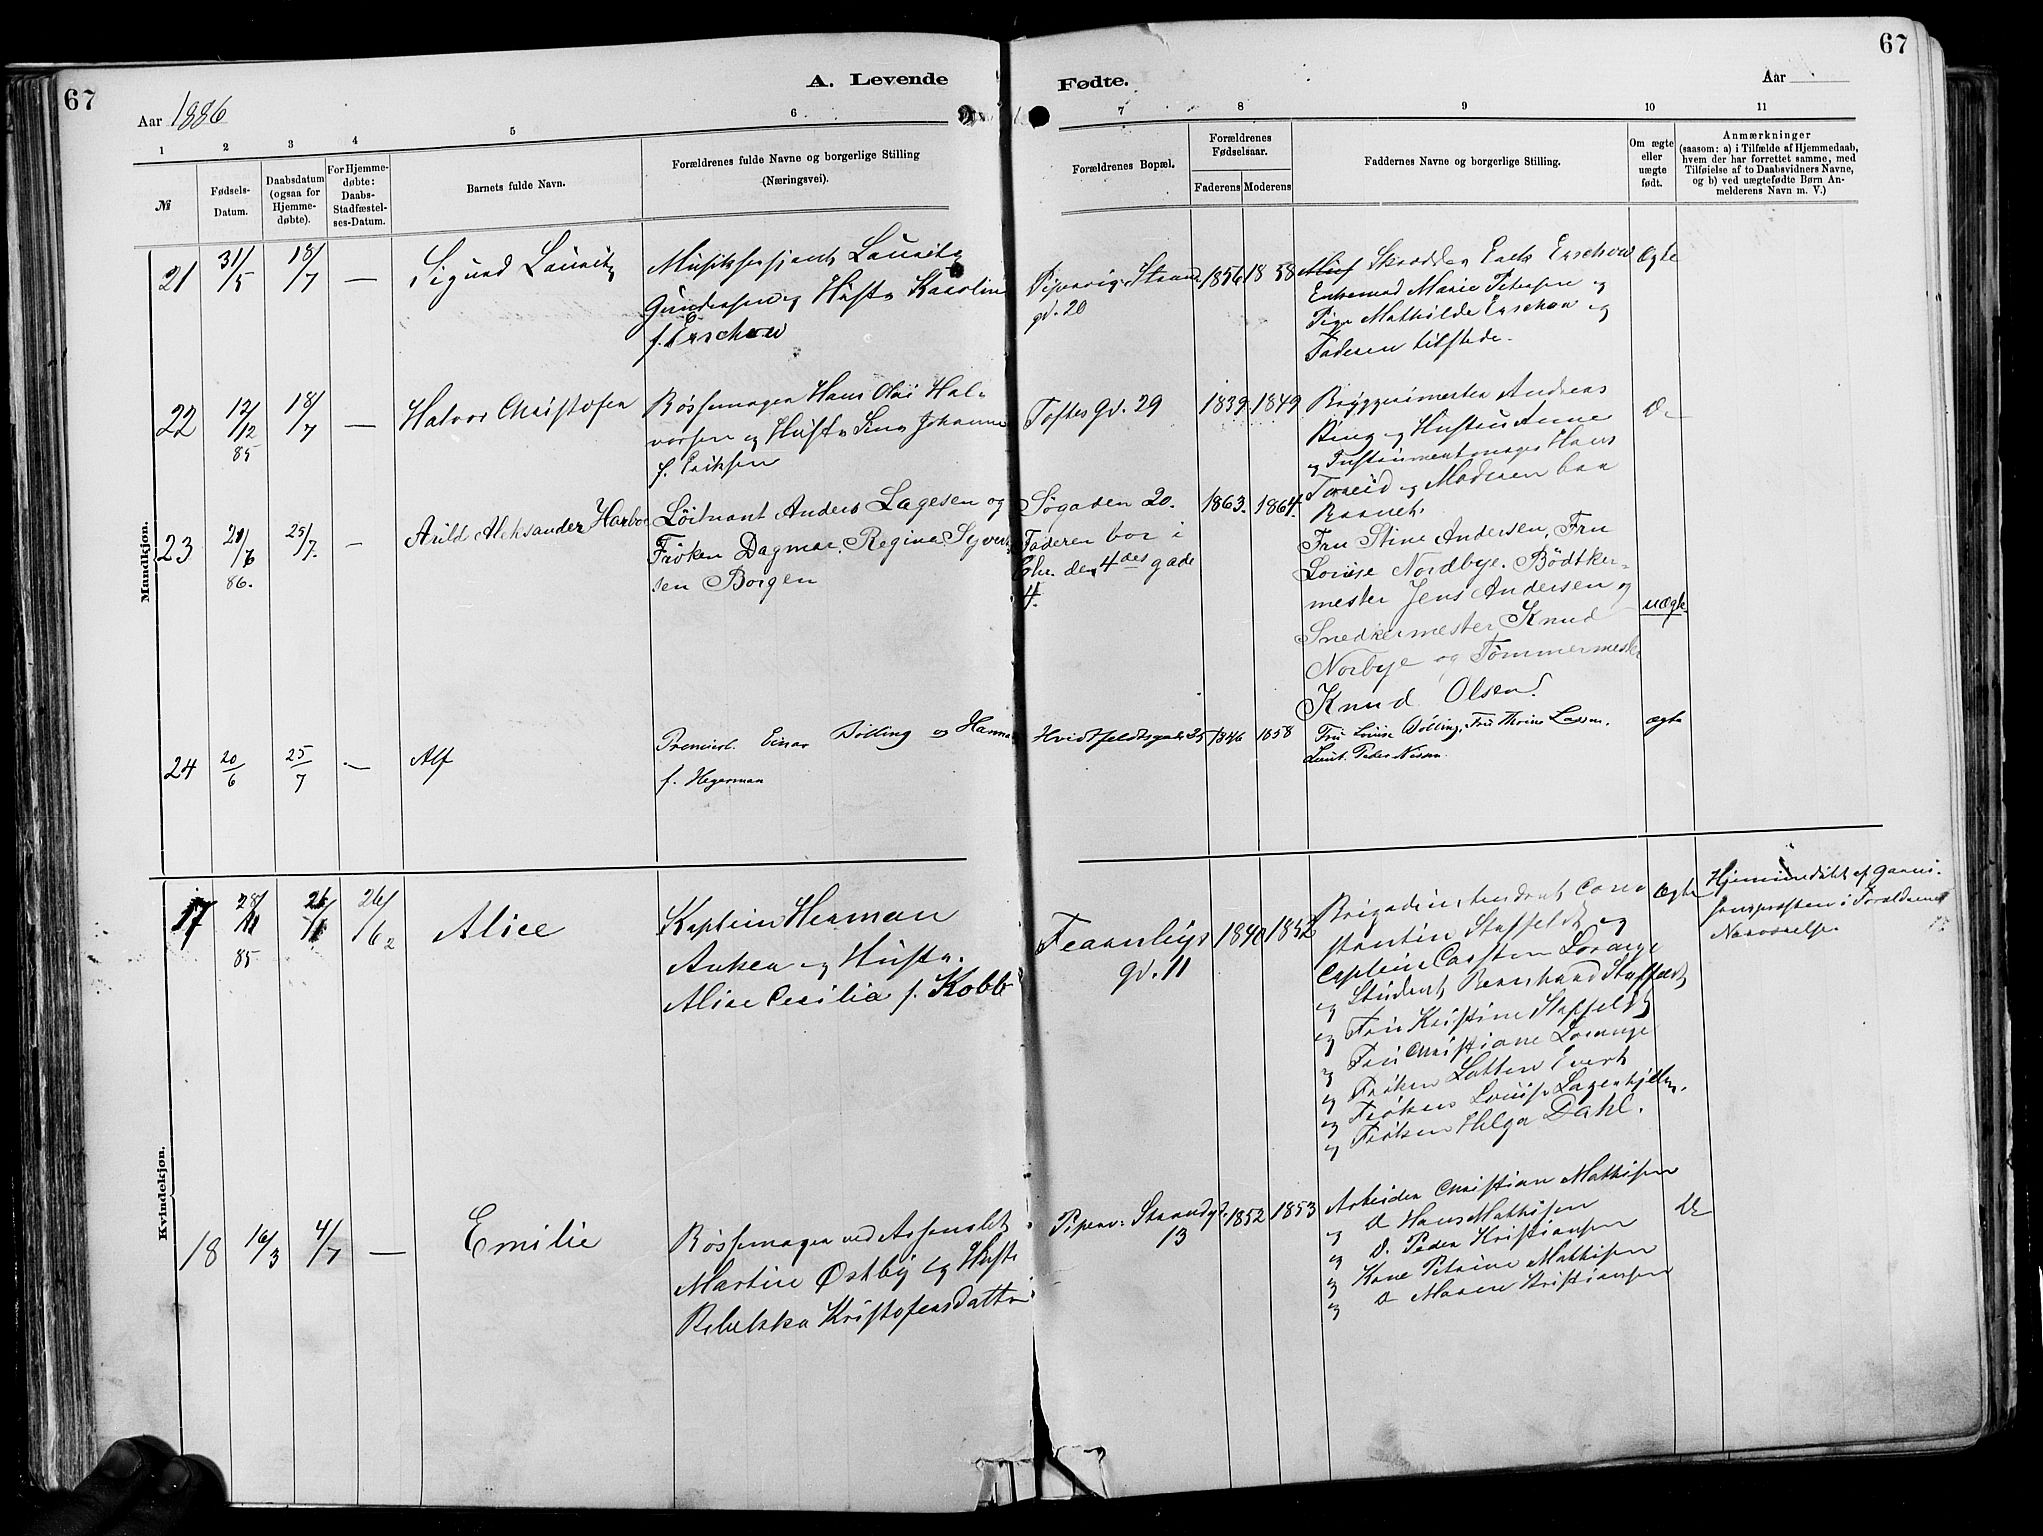 67
A. Levende
Fødte.
67
Aar 1886
Aar
1 2 3 4 5 6 7 8 9 10 11
№
Fødsels-
Datum.
Daabsdatum
(ogsaa for
Hjemme-
døbte).
For Hjemme-
døbte:
Daabs-
Stadfæstel-
ses-Datum.
Barnets fulde Navn.
Forældrenes fulde Navne og borgerlige Stilling
(Næringsvei).
Forældrenes Bopæl.
Forældrenes
Fødselsaar.
Faderens Moderens
Faddernes Navne og borgerlige Stilling.
Om ægte
eller
uægte
født.
Anmærkninger
(saasom: a) i Tilfælde af Hjemmedaab,
hvem der har forrettet samme, med
Tilføielse af to Daabsvidners Navne,
og b) ved uægtefødte Børn An-
melderens Navn m. V.)
Mandkjøn.
21
31/5
18/7
—
Sigurd Lauritz
Musiksersjant Lauritz
Gundersen og Hustr Karoline
f. Erschow
Pipervig. Strand
gd. 20
1856
1858
Skrædder Erschow
Enkemad Marie Petersen og
Pige Mathilde Erschow og
Faderen tilstede.
Ægte
22
12/12
85
18/7
—
Halvor Christofer
Bøssemager Hans Olai Hal-
vorsen og Hustr Lina Johanne
f. Eriksen
Toftes Gd. 29
1839
1849
Bryggerimester Andreas
Ring og Hustru Anne
og Instrumentmager Hans
Torseid og Moderen baa
Baarnet.
Do
23
21/6
86.
25/7.
—
Arild Aleksander Harboe
Löitnant Anders Lagesen og
Frøken Dagmar Regine Syvert-
sen Borgen
Søgaden 20.
Faderen bor i
Chr. den 4des gade
4.
1863.
1864.
Fru Stine Andersen, Fru
Louise Nordbye. Bödtker-
mester Jens Andersen og
Snedkermester Knud
Norbye og Tømmermester
Knud Olsen.
uægte
24
20/6
25/7
—
Alf
Premierl. Einar Dölling og Hanna
f. Hegerman
Hvidtfeldtsgade 25
1846
1858
Fru Louise Dölling, Fru Thrine Lassen.
Lieut. Peder Nissen.
ægte
Kvindekjøn.
17
28/11
85
26/1
26/6
Alice
Kaptein Herman
Anker og Hustr.
Alice Cecilia f. Kobb
Fearnleys
gd. 11
1840
1852
Brigadeintendent Con-
stantin Staffeldt og
Captein Carsten Lorange
og Student Bernhard Staffeldt
og Fru Kristine Staffeldt
og Fru Christiane Lorange
og Frøken Lotten Evert
og Frøken Louise Lagerhjelm.
og Frøken Helga Dahl.
Ægte
Hjemmedøbt af Garni-
sonspræsten i Forældrenes
Nærværelse.
18
16/3
4/7
—
Emilie
Bøssemager ved Arsenalet
Martin Østby og Hustr
Rebekka Kristofersdatter
Piperv. Strandgd.
13
1852
1853
Arbeider Christian Mathisen
og Do Hans Mathisen
og D. Peder Kristiansen
og Kone Petrine Mathisen
og Do Maren Kristiansen
Do